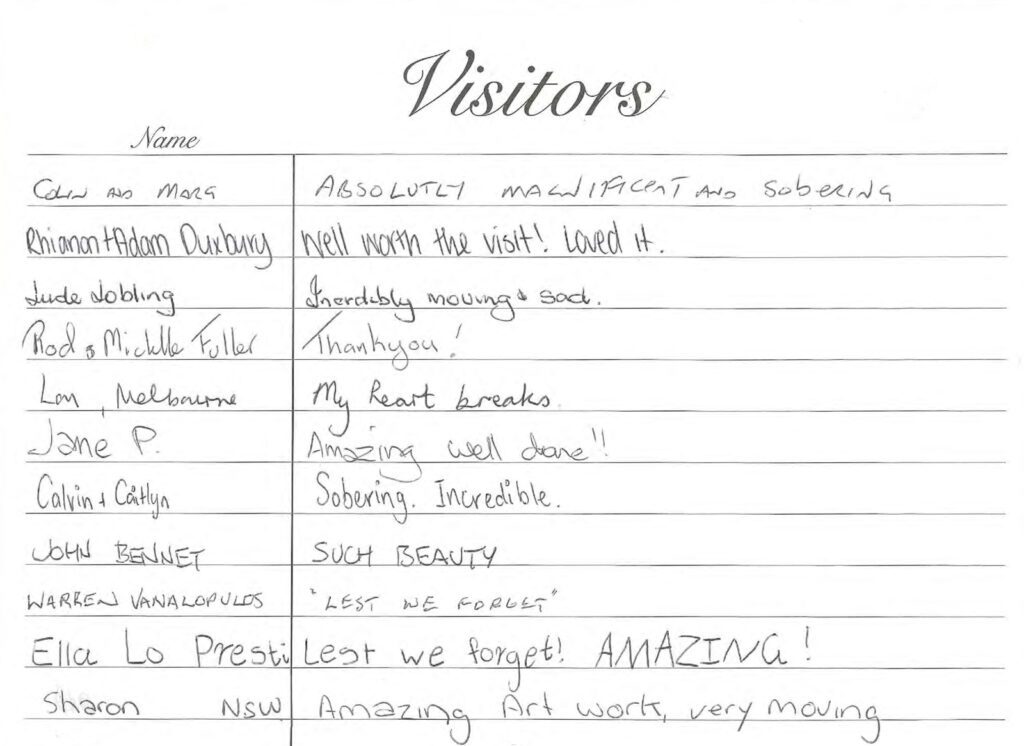 Visitors
Name
COLIN AND MARG ABSOLUTLY MAGNIFICENT AND SOBERING
Rhianon + Adam Duxbury Well worth the visit! Loved it.
Jude Jobling Incredibly moving & sad.
Rod & Michelle Fuller Thankyou!
Lou, Melbourne My heart breaks.
Jane P. Amazing well done!!
Calvin + Caitlyn Sobering. Incredible.
JOHN BENNET SUCH BEAUTY
WARREN VANALOPULOS "LEST WE FORGET"
Ella Lo Presti Lest we forget! AMAZING!
Sharon NSW Amazing Art work, very moving